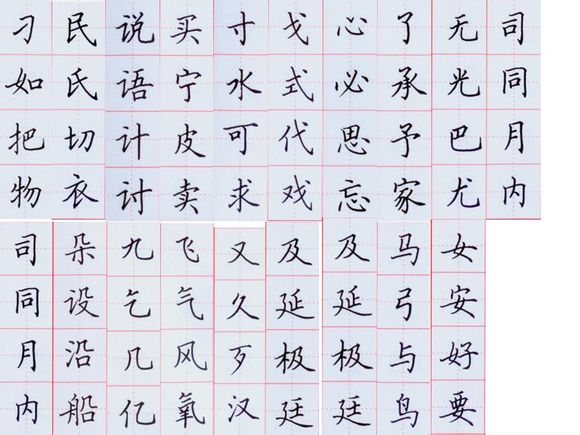 刁 民 说 买 寸 戈 心 了 无 司
如 氏 语 宁 水 式 必 承 光 同
把 切 计 皮 可 代 思 予 巴 月
物 衣 讨 卖 求 戏 忘 家 尤 内
司 朵 九 飞 又 及 及 马 女
同 设 乞 气 久 延 延 弓 安
月 沿 几 风 歹 极 极 与 好
内 船 亿 氧 汉 廷 廷 鸟 要